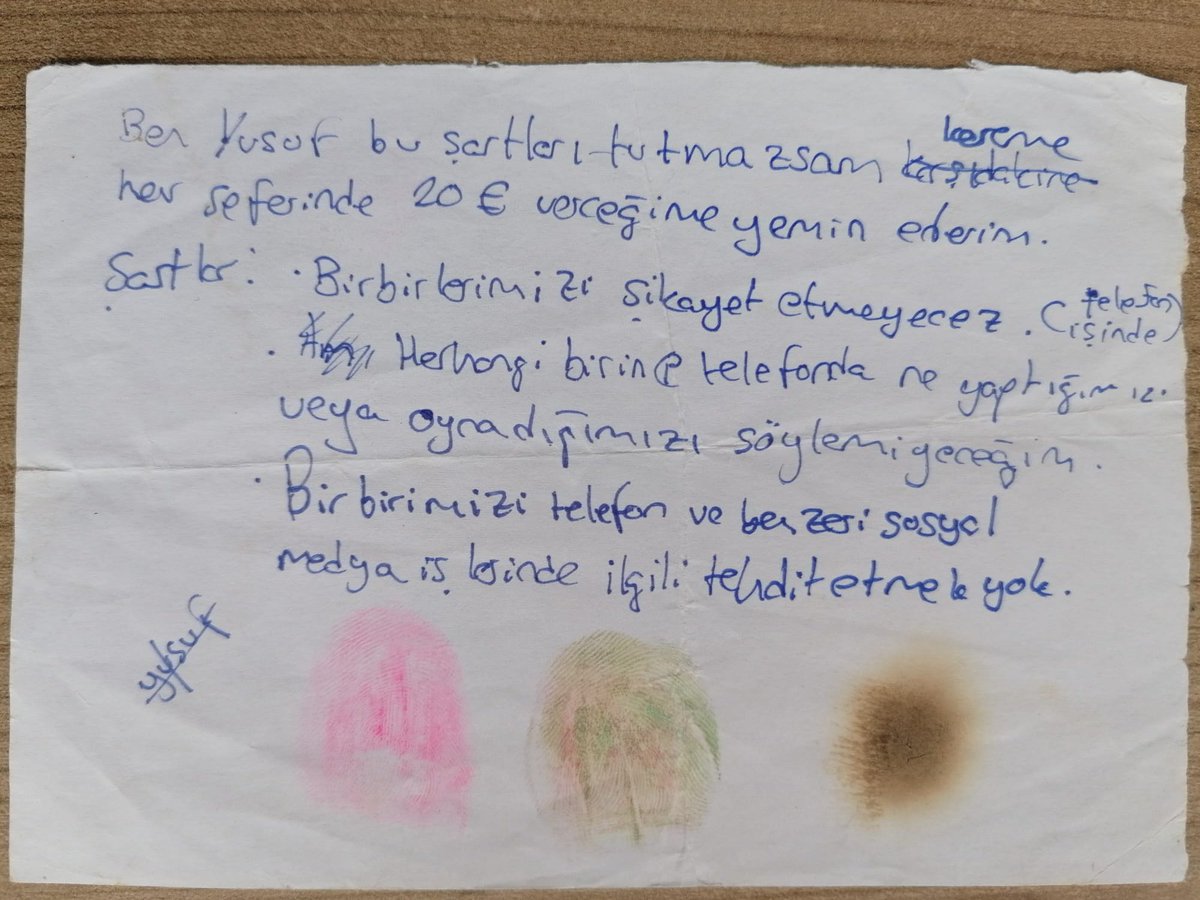 Ben Yusuf bu şartları tutmazsam kereme
her seferinde 20 € verceğime yemin ederim.
Şartlar: · Birbirlerimizi şikayet etmeyecez. (telefon işinde)
· Herhangi birine telefonda ne yaptığımız.
veya oynadığımızı söylemiyeceğim.
· Birbirimizi telefon ve benzeri sosyal
medya işlerinde ilgili tehdit etmek yok.
yusuf